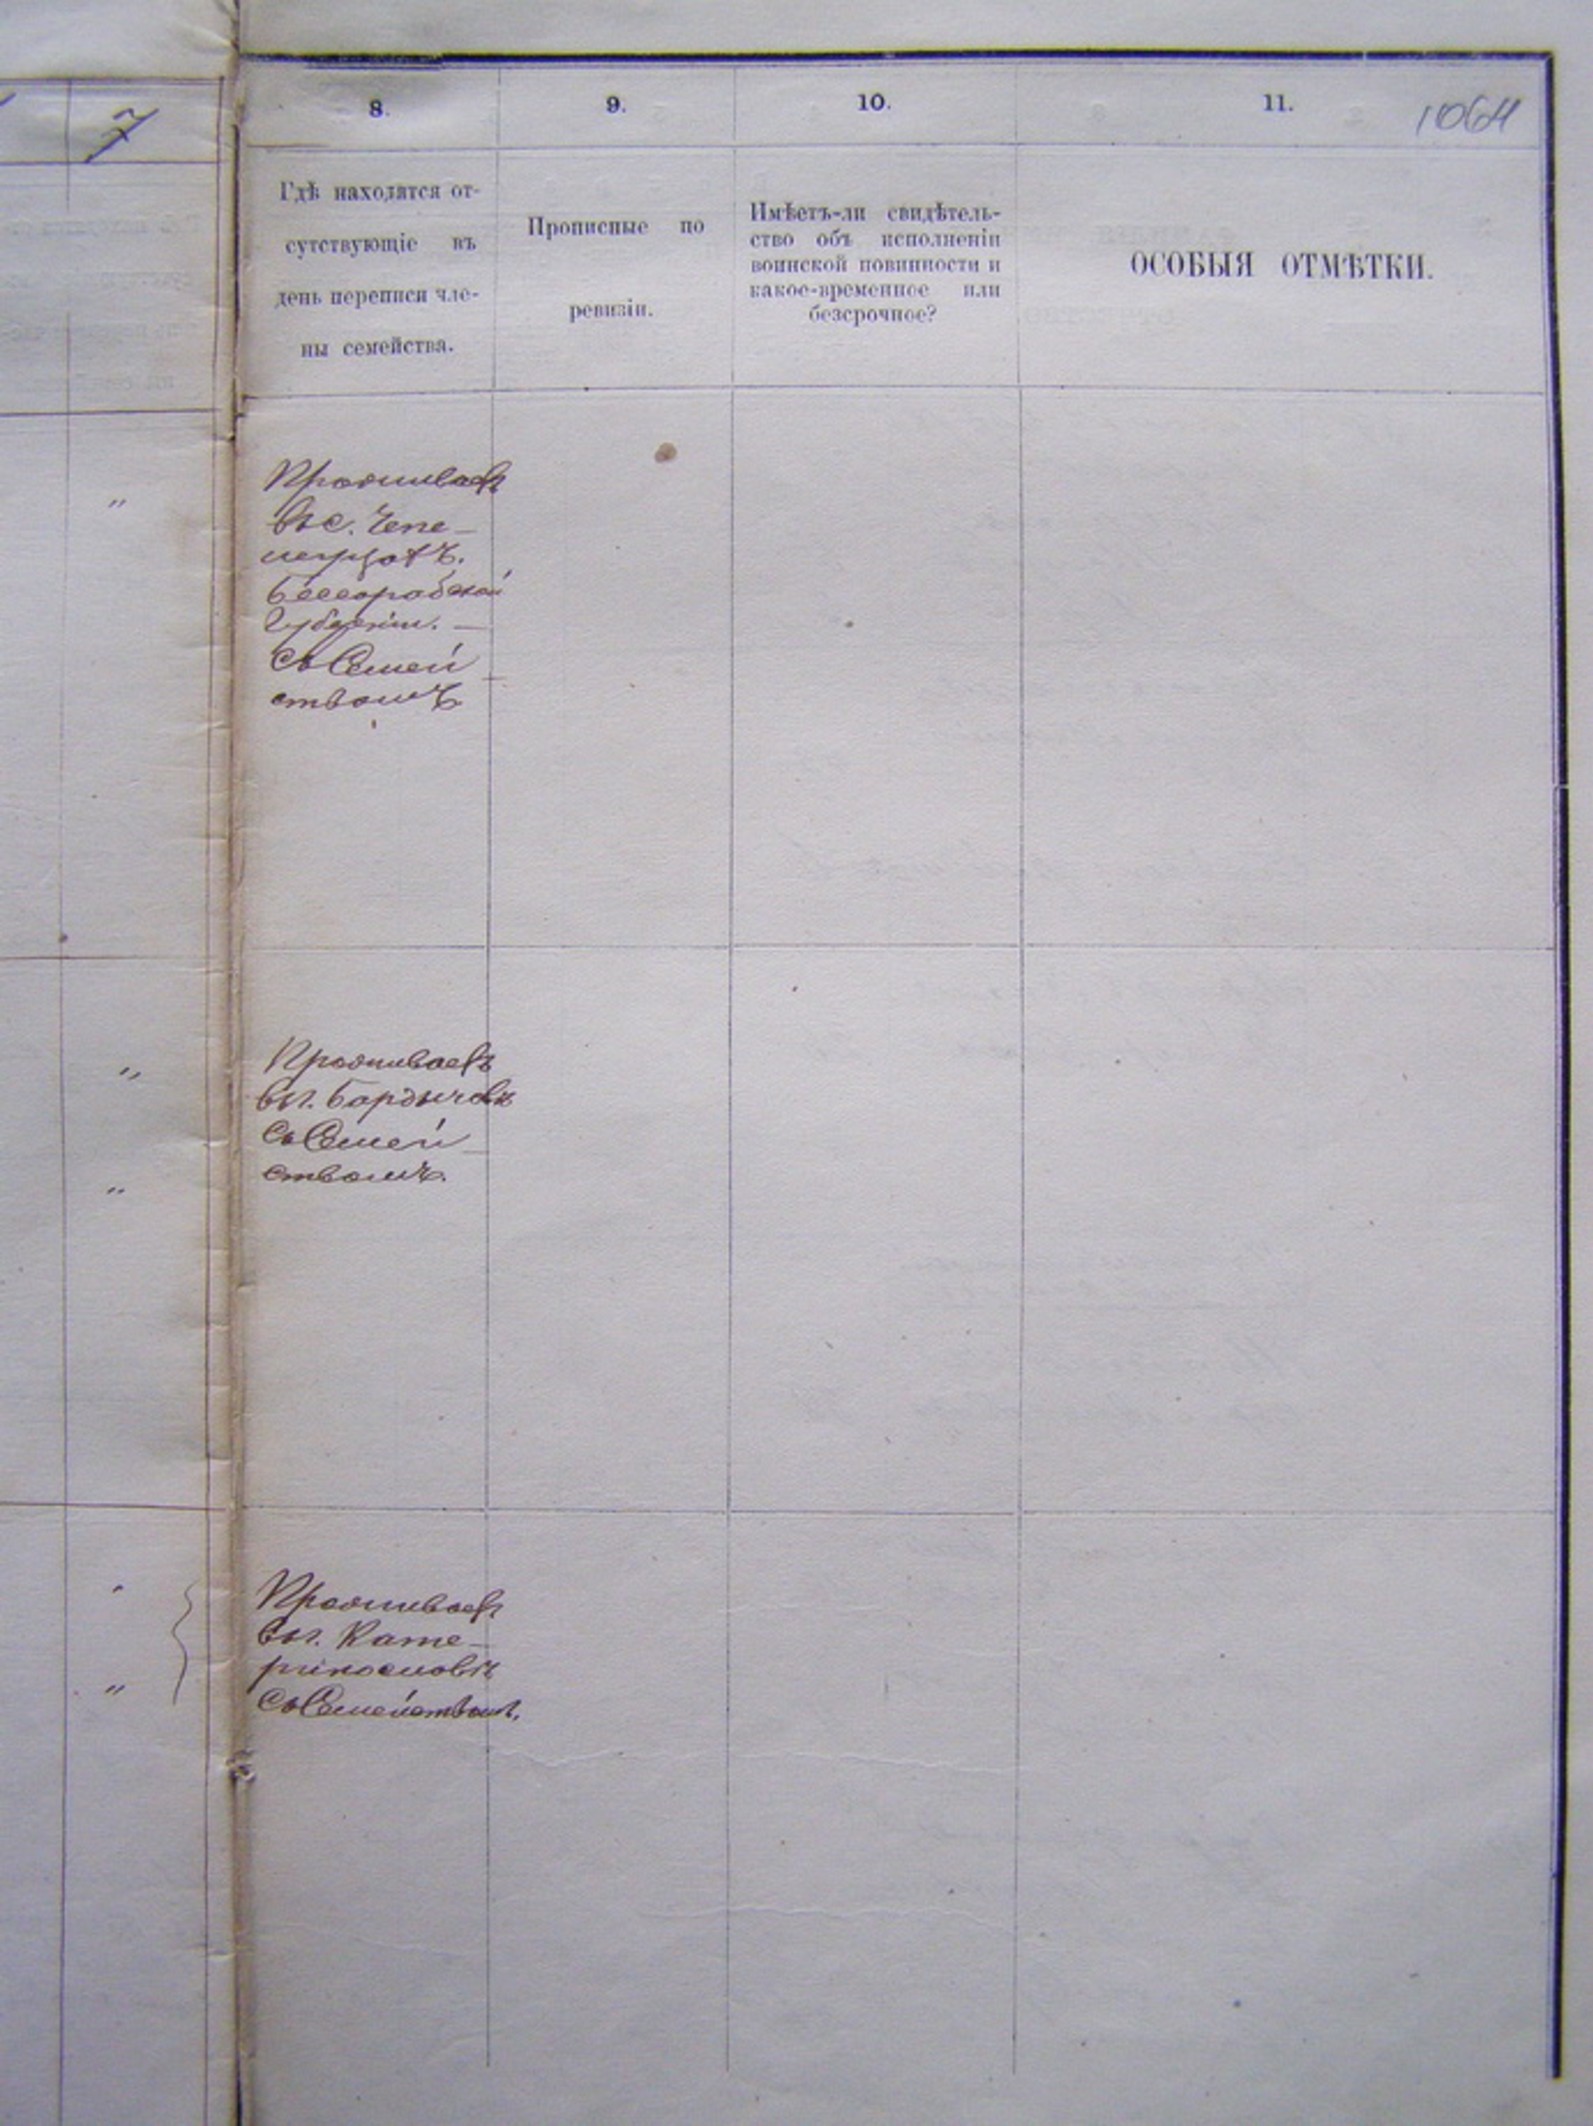 7
8. 9. 10. 11. 1064
Гдѣ находятся от-
сутствующіе въ
день переписи чле-
ны семейства.
Прописные по
ревизіи.
Имѣетъ-ли свидѣтель-
ство объ исполненіи
воинской повинности и
какое-временное или
безсрочное?
ОСОБЫЯ ОТМѢТКИ.
"
Проживаетъ
въ с. Чепе-
Бессарабской
Губерніи. —
съ Семей
ствомъ
"
Проживаетъ
въ г. Бардычовѣ
съ Семей
ствомъ.
"
Проживаетъ
въ г. Кате-
ринославѣ
съ Семействомъ.
"